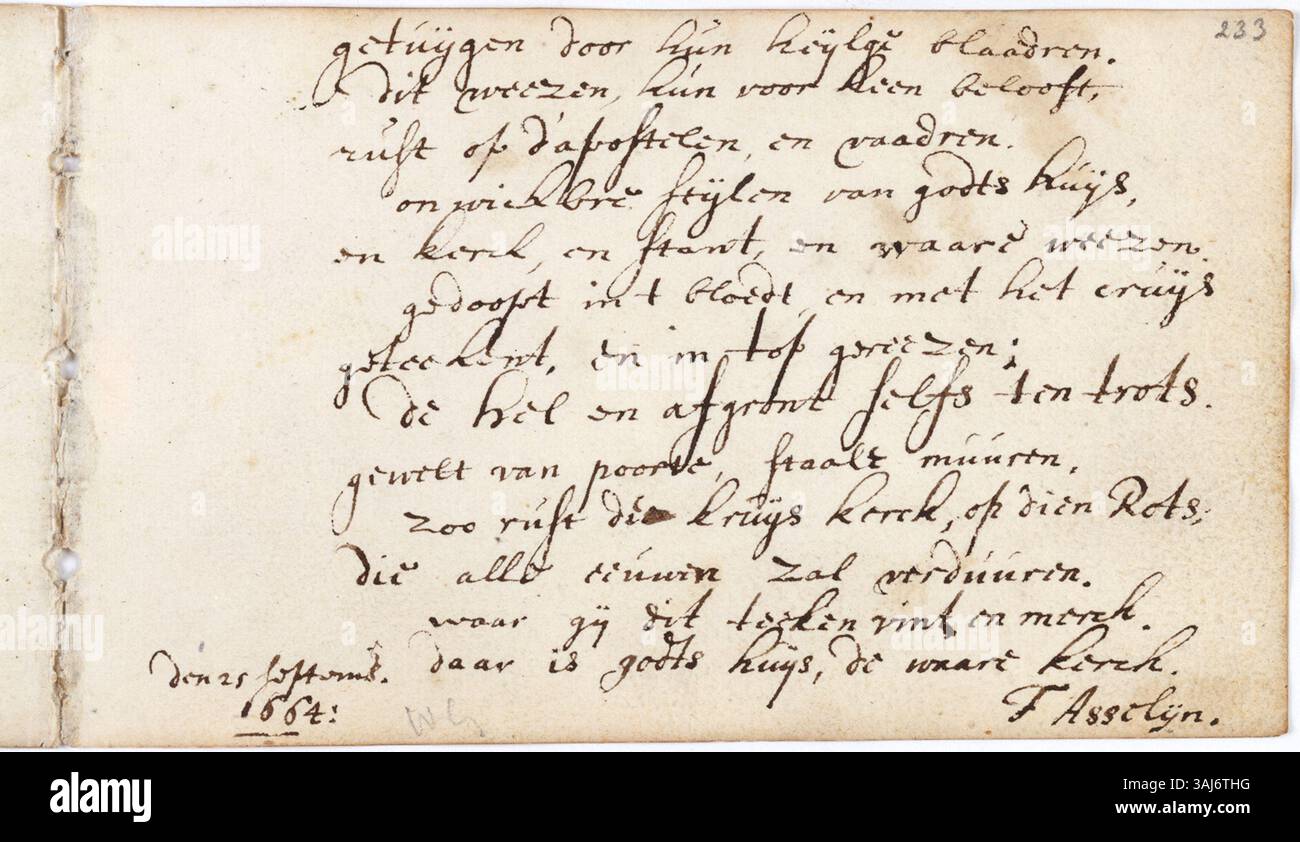 233
getuÿgen door hun heÿlge blaadren.
dit weezen, hun voor heen belooft,
rust op d'apostelen, en vaadren.
onwickbre stÿlen van godts huÿs,
en kerck, en stant, en waare weezen.
gedoopt in t bloedt, en met het cruÿs
geteekent, en in top gereezen;
de hel en afgront selfs ten trots.
gewelt van poorte, staale muuren,
zoo rust die kruÿs kerck, op dien Rots,
die alle eeuwen zal verduuren.
waar gÿ dit teeken vint en merck.
daar is godts huÿs, de waare kerch.
den 25 septemb.
1664:
T Asselÿn.
WG
alamy
alamy
Image ID: 3AJ6THG
www.alamy.com